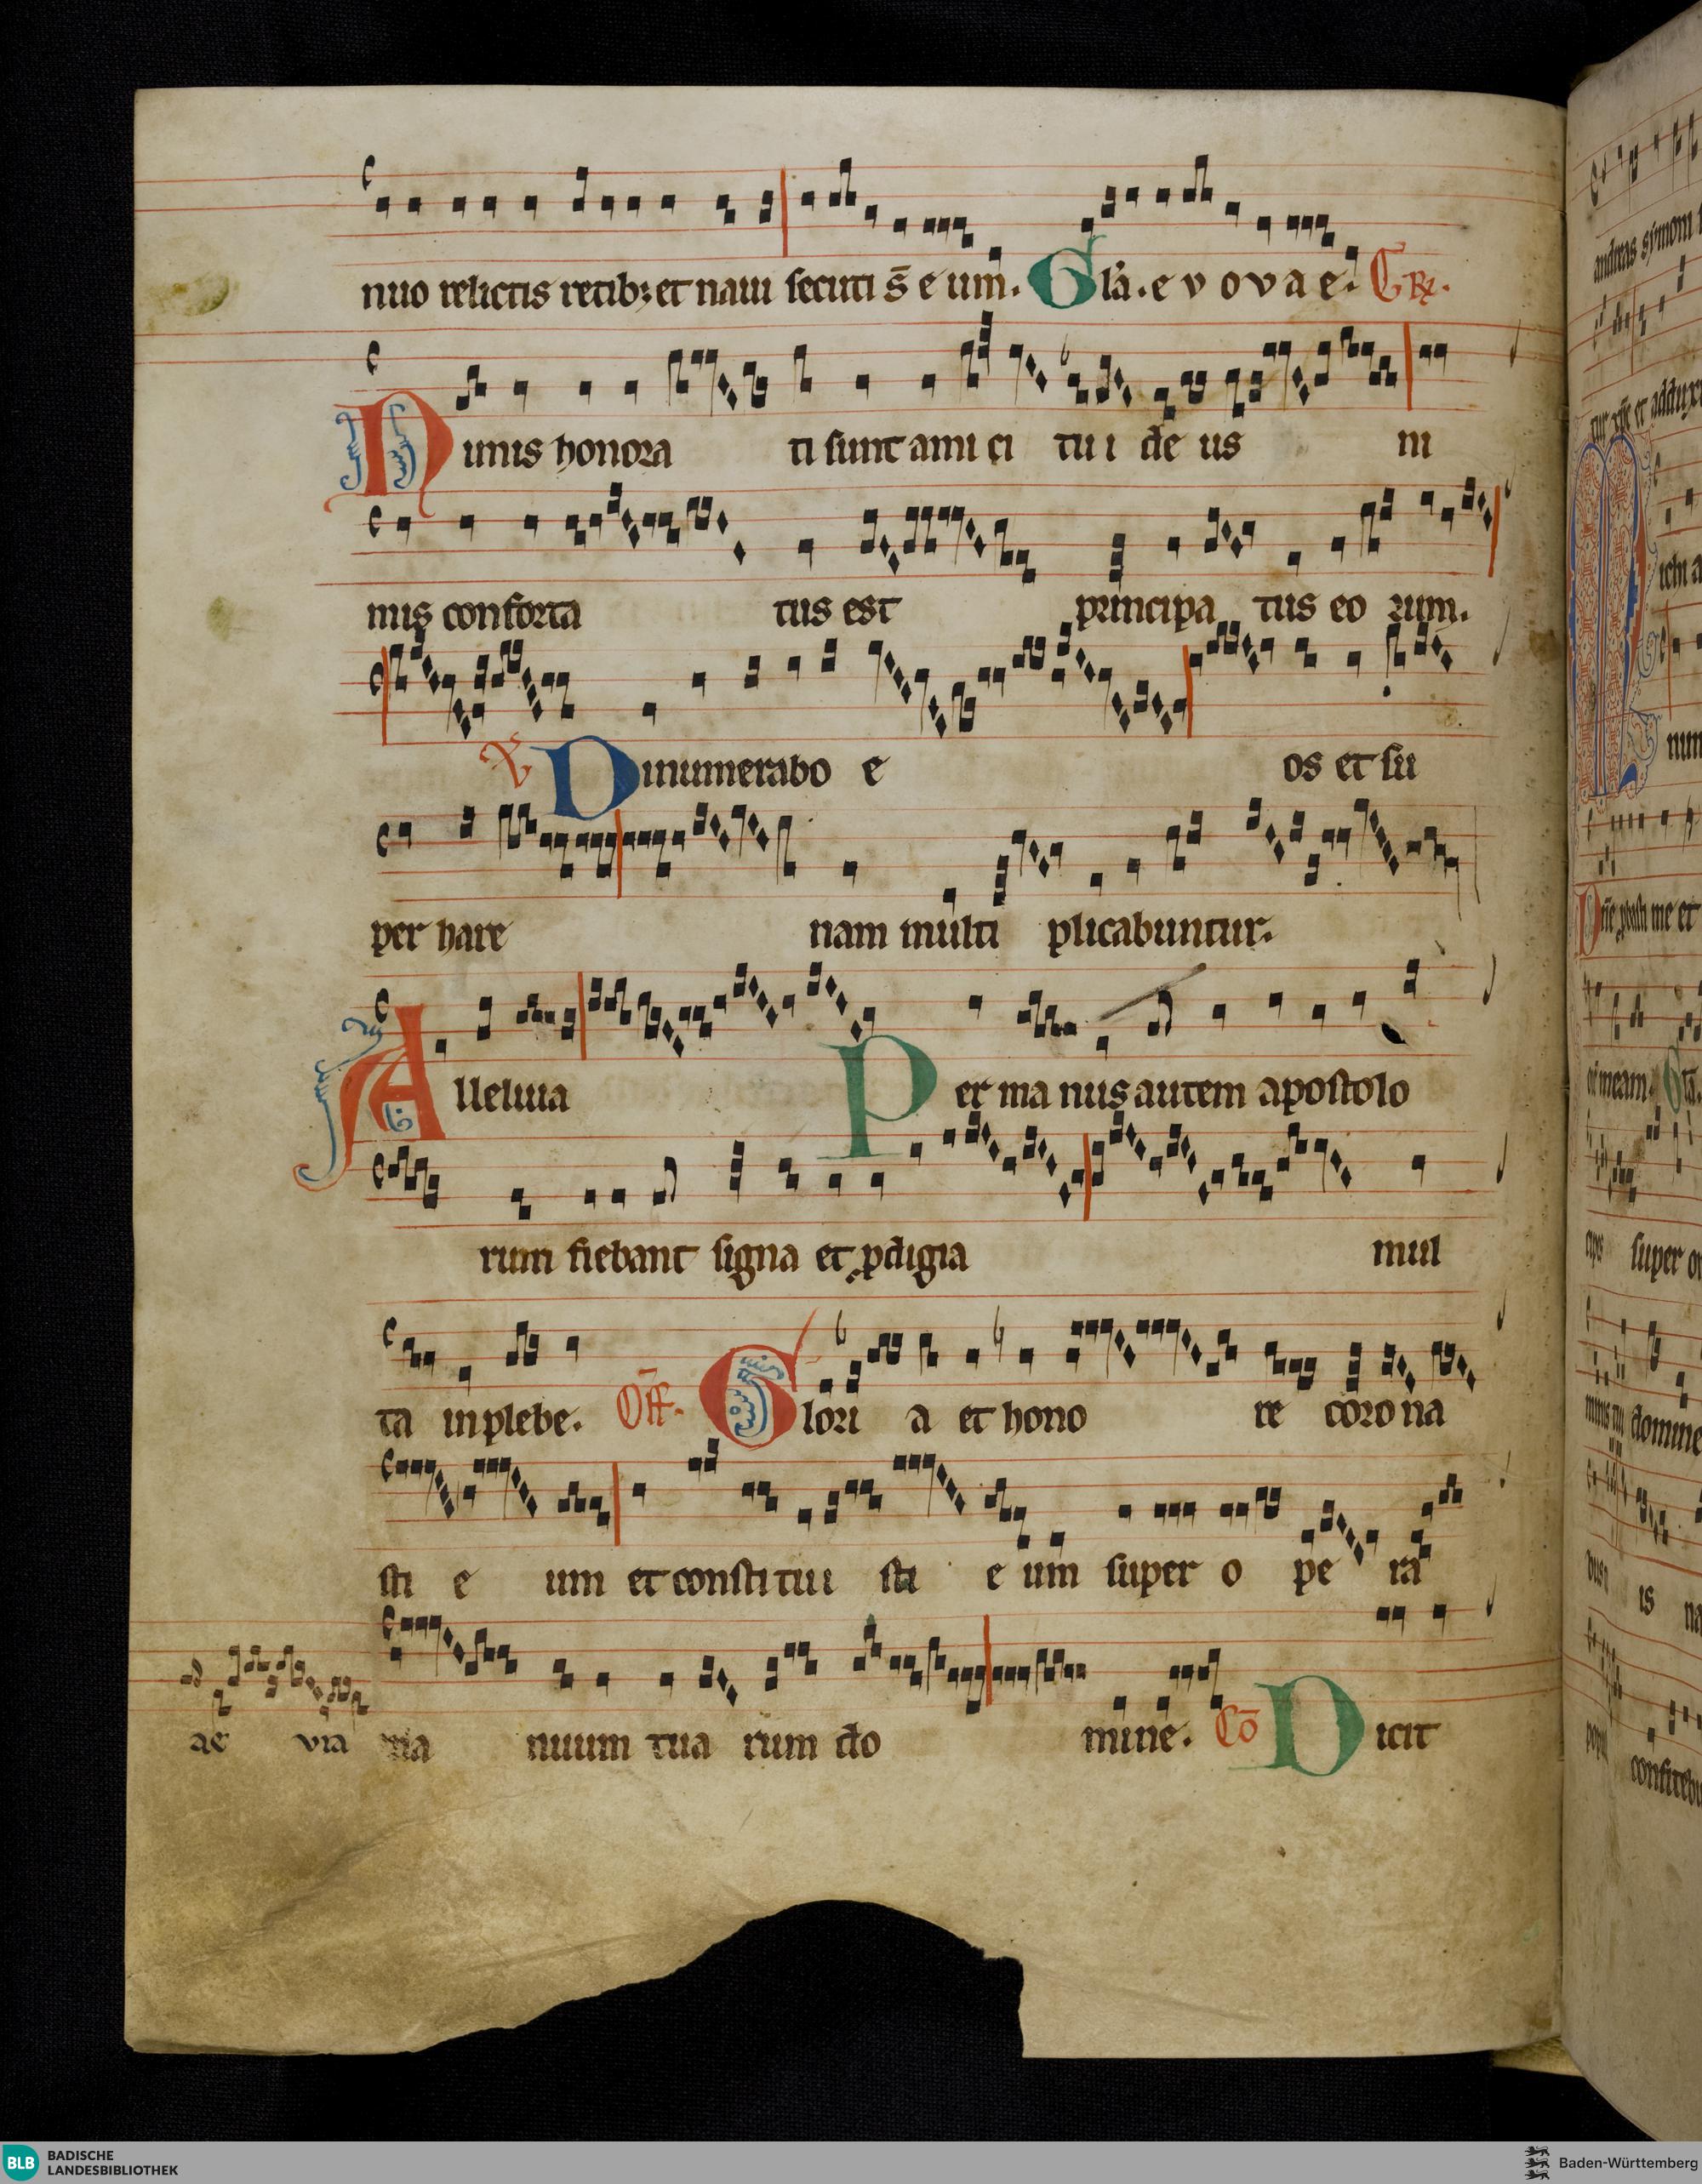 nuo relictis retib; et naui secuti s̄ e um. Gła. e v o v a e. GR.
Nimis honora ti sunt ami ci tu i de us ni
mis conforta tus est principa tus eo rum.
V Dinumerabo e os et su
per hare nam multi plicabuntur.
Alleluia Per ma nus autem apostolo
rum fiebant signa et pdigia mul
ta in plebe. Off. Glori a et hono re corona
sti e um et constitui sti e um super o pe ra
ac via ma nuum tua rum do mine. Cō Dicit
andreas symoni
num
super
domine
is
BLB BADISCHE
LANDESBIBLIOTHEK
Baden-Württemberg